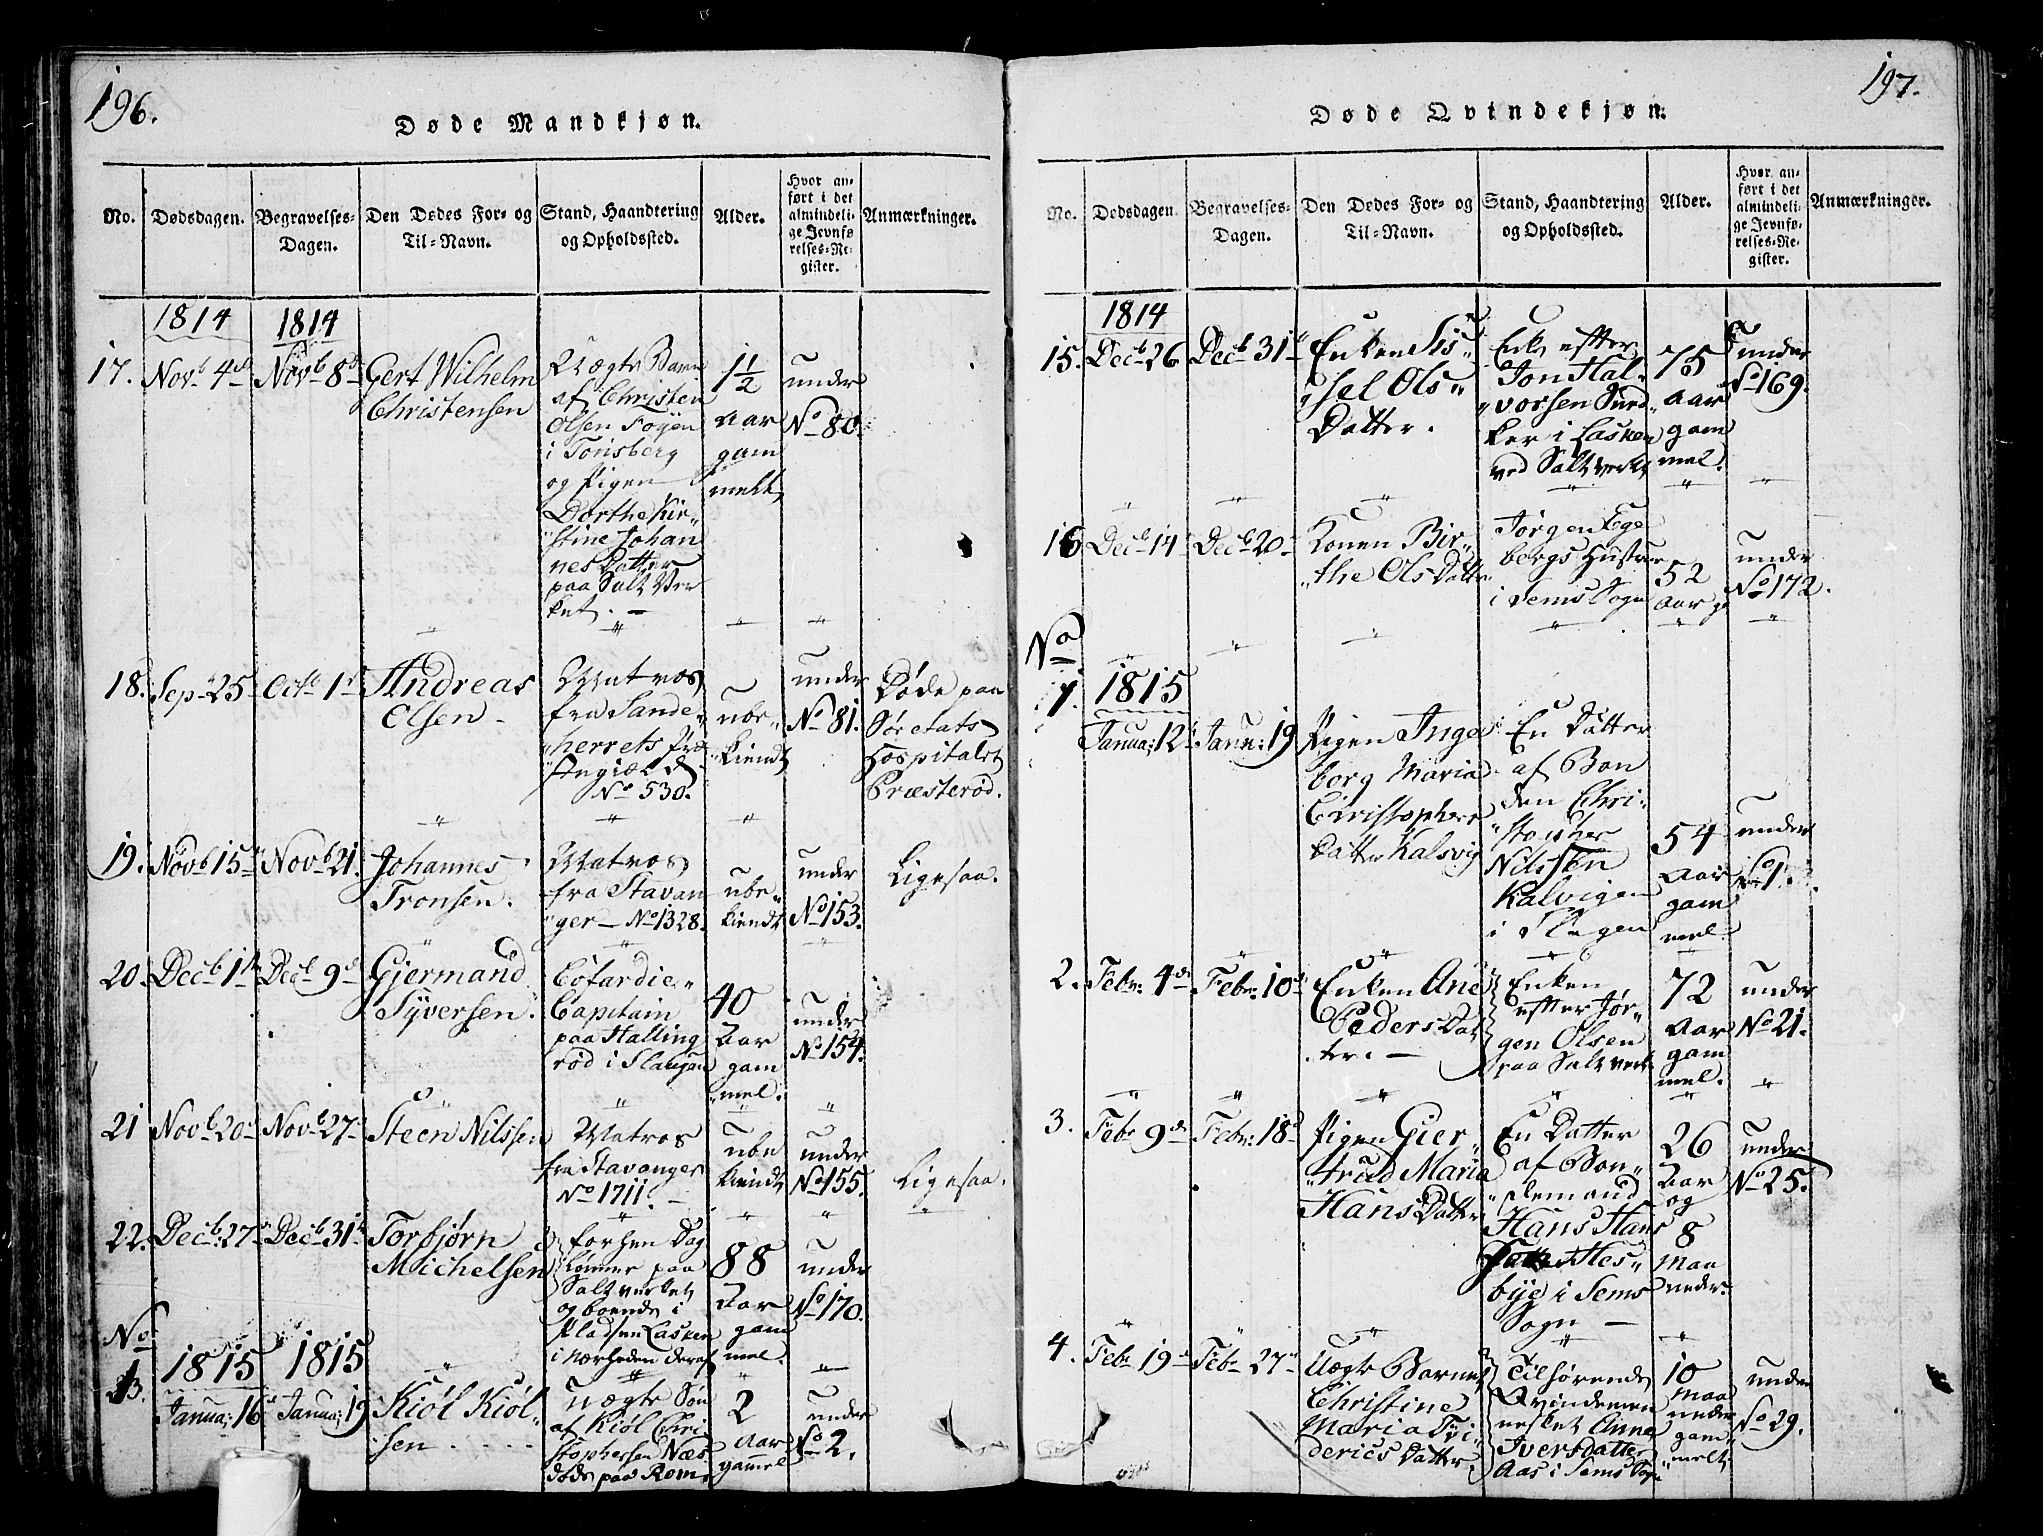 196.
Døde Mandkjøn.
No. Dødsdagen. Begravelses-Dagen. Den Dødes For- og Til-Navn. Stand, Haandtering og Opholdssted. Alder. Hvor anført i det almindelige Jevnførelses-Register. Anmærkninger.
1814 1814
17. Novb 4de Novb 8de
Gert Wilhelm
Christensen
Uægte Barn
af Christen
Olsen Föyen
i Tönsberg
og Pigen
Dorthe Kir„
„stine Johan
nes Datter
paa Salt Ver
ket. —
1½
Aar
gam
melt
under
No 80.
18. Sep 25 Octb 1
Andreas
Olsen
Matros
fra Sande„
„herrets
No 530.
ube„
„kiendt
under
No 81.
Døde paa
Söe etats
Hospitalet
Præsteröd.
19. Novb 15 Novb 21.
Johannes
Tronsen.
Matros
fra Stavan
„ger — No 1328.
ube„
kiendt
under
No 153.
Ligesaa.
20. Decb 1 Decb 9de
Gjermand
Syversen.
Cofardie„
Capitain
paa Halling
röd i Slangen
40
Aar
gam
„mel.
under
No 154.
21 Novb 20 Novb 27
Steen Nilssen
Matros
fra Stavanger
No 1711. —
ube
kiendt
under
No 155.
Ligesaa.
22. Decb 27 Decb 31
Torbjörn
Michelsen
forhen Dag
lönner paa
Saltverket
og boende i
Pladsen Lasken
i Nærheden deraf
88
Aar
gam
mel.
under
No 170.
No
1.
1815 1815
Janua: 16 Janua: 19
Kiöl Kiöl„
„sen
uægte Sön
af Kiöl Chri
stophersen Næs
döde paa Rom.
2
Aar
gammel
under
No 2.
197.
Døde Qvindekjøn.
No. Dødsdagen. Begravelses-Dagen. Den Dødes For- og Til-Navn. Stand, Haandtering og Opholdssted. Alder. Hvor anført i det almindelige Jevnførelses-Register. Anmærkninger.
1814
15. Decb 26 Decb 31
Enken Sis„
„sel Ols„
Datter.
Enke efter
Jon Hal„
„vorsen
i Lasken
ved Saltverket
75
Aar
gam
mel.
under
No 169.
16 Decb 14 Decb 20
Konen Bir„
„the Ols Datter
Jörgen Ege
bergs Hustrue
i Sems Sogn
52
Aar g
under
No 172.
No
1. 1815
Janua: 12 Janu: 19
Pigen Inge
borg Maria
Christophers
Datter Kalsvig
En Datter
af Bon
den Chri„
„stopher
Nilssen
Kalvigen
i Slagen
54
Aar
gam
mel.
under
No 1.
2. Febr: 4de Febr: 10de
Enken Ane
Peders Dat
ter. —
Enken
efter Jör„
gen Olsen
paa Saltverk
72
Aar
gam
mel.
under
No 21.
3. Febr 9de Febr: 18
Pigen Gier„
„trud Maria
Hans Datter
En Datter
af Bon„
„demand
Hans Hans
Hes„
bye i Sems
Sogn —
26
Aar
og
8
Maa
neder.
under
No 25.
4. Febr 19 Febr 27
Uægte Barnet
Christine
Maria
derics Datter.
Tilhörende
Qvindemen
nesket Anne
Iversdatter
Aas i Sems Sogn
10
Maa
neder
gam„
„melt
under
No 29.